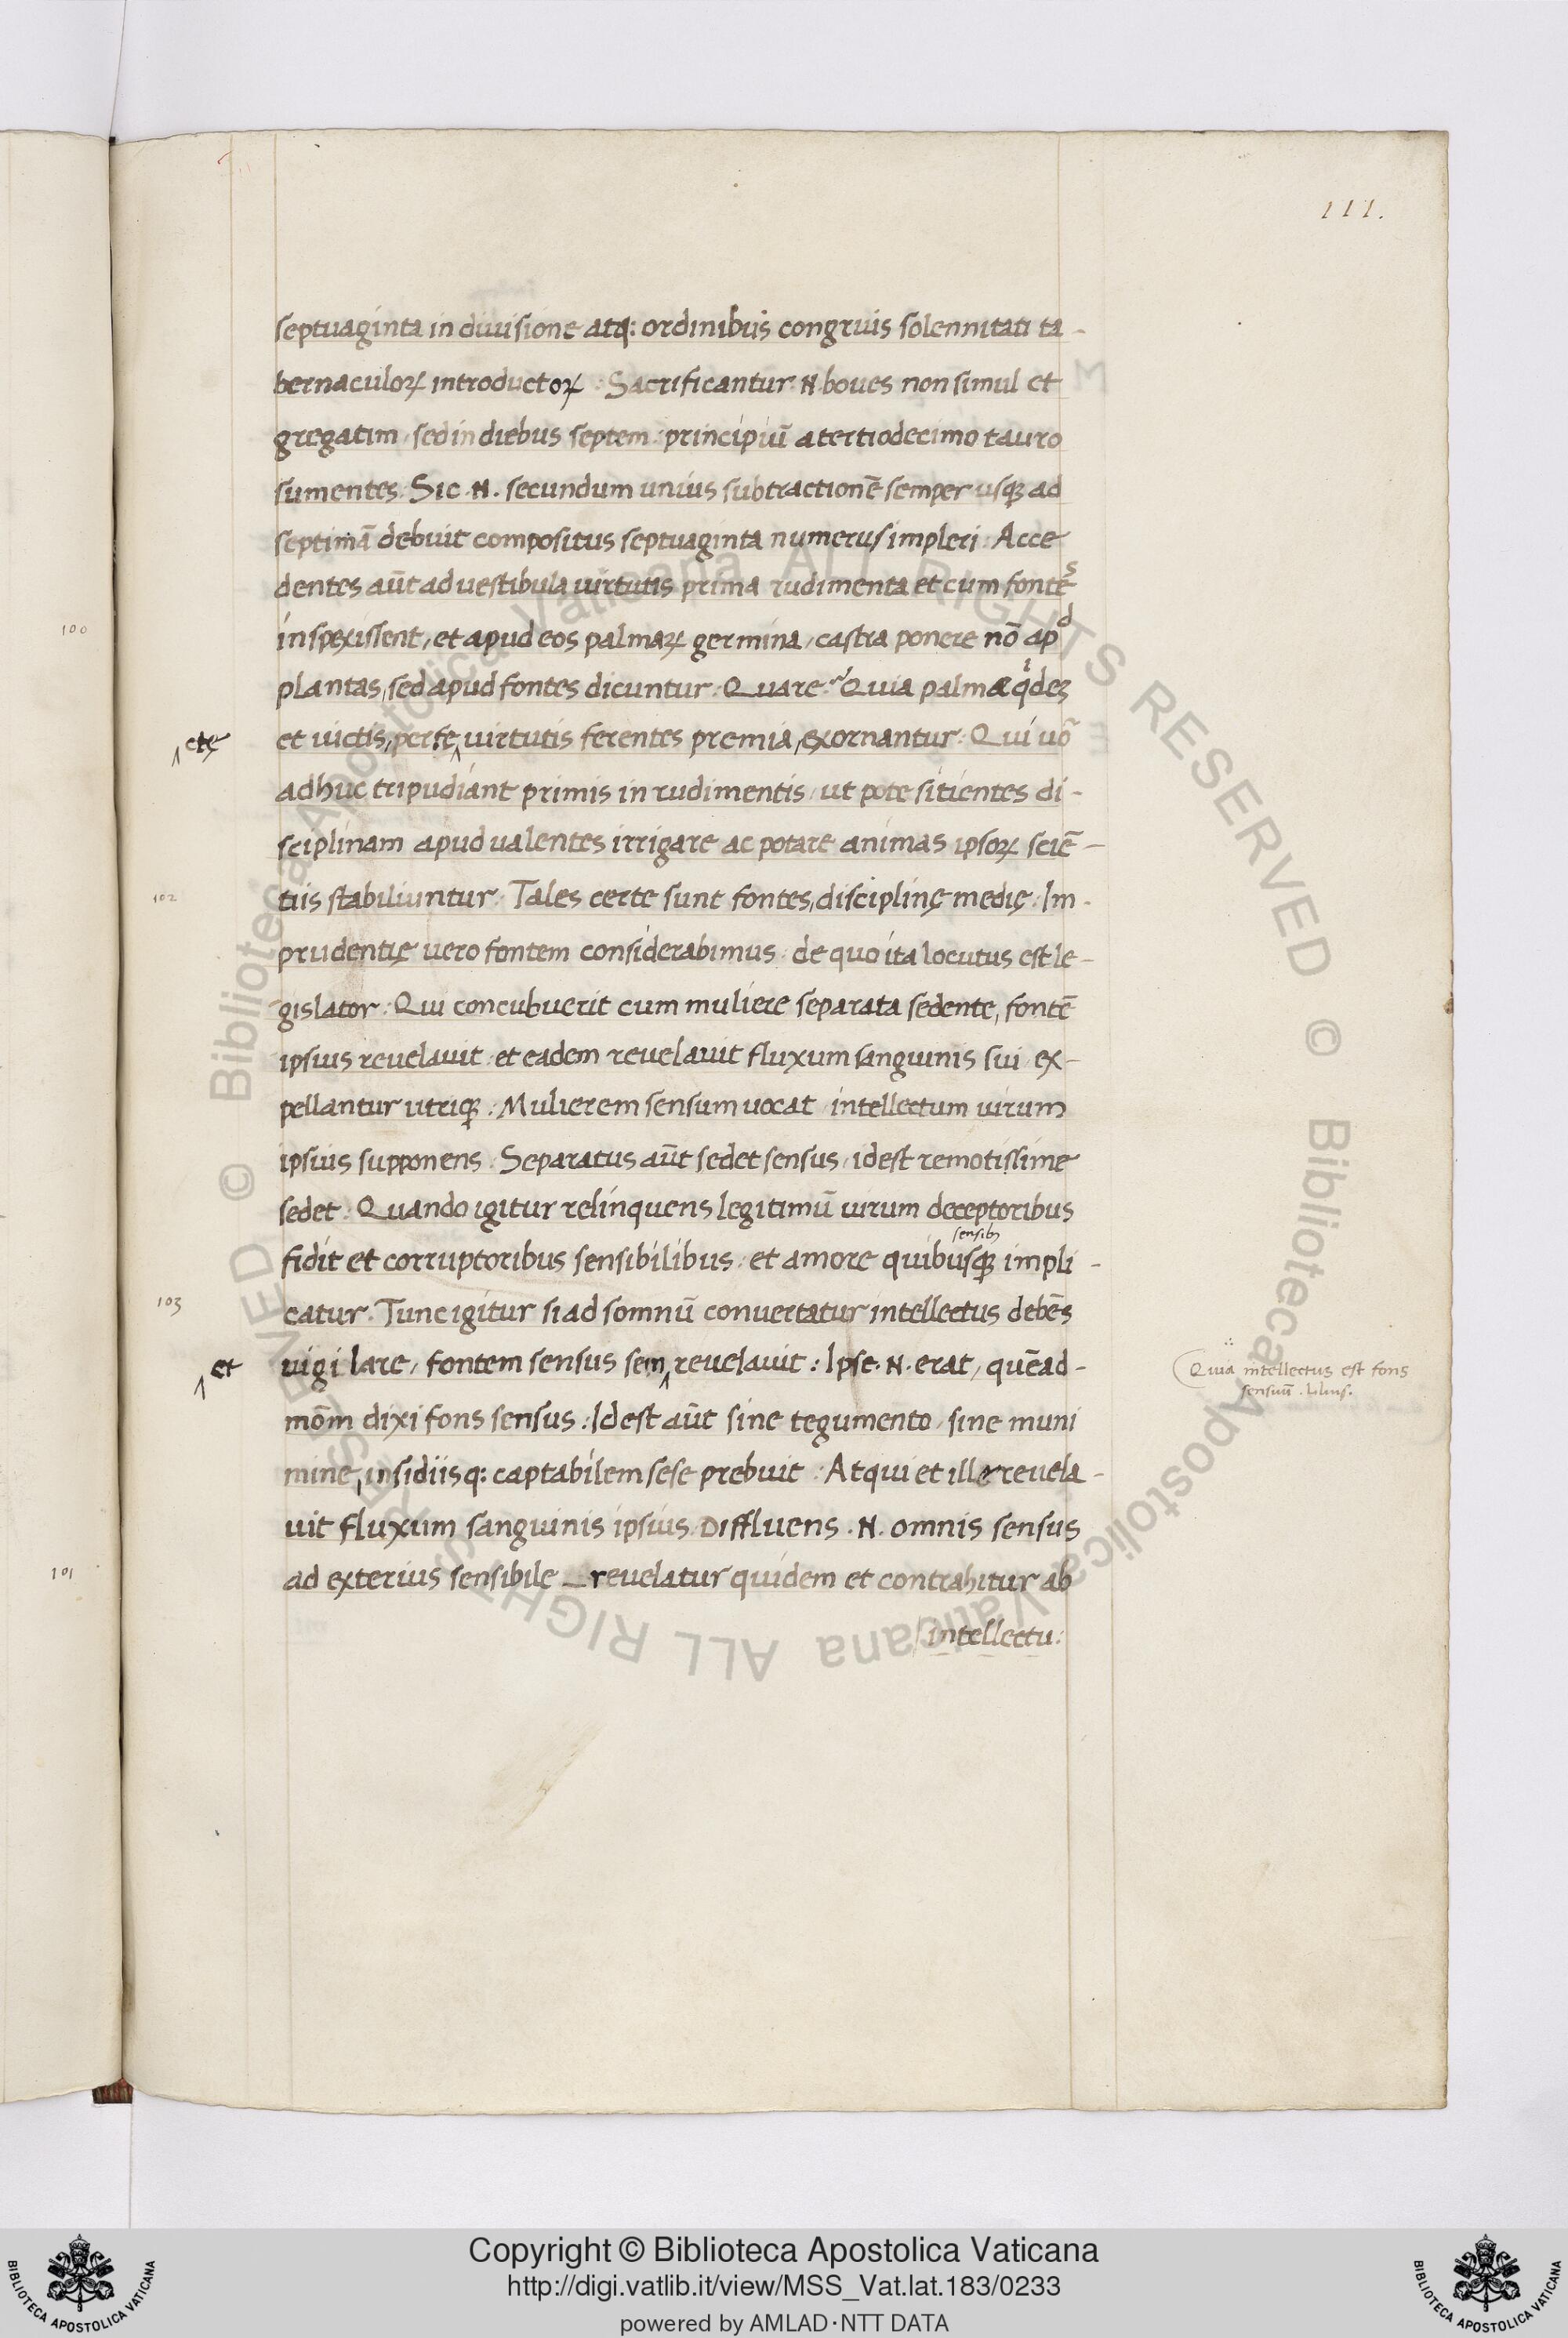 111.
septuaginta in diuisione atq: ordinibus congruis solennitati ta-
bernaculoꝝ introductoꝝ : Sacrificantur .N. boues non simul et
gregatim, sed in diebus septem: principiū a tertiodecimo tauro
sumentes: Sic .N. secundum unius subtractionē semper usqꝫ ad
septimā debuit compositus septuaginta numerus impleri: Acce
dentes aūt ad uestibula uirtutis prima rudimenta et cum fontes
inspexissent, et apud eos palmaꝝ germina, castra ponere nō apd
plantas, sed apud fontes dicuntur: Quare? Quia palmæ qideꝫ
^ ctę
et uictis, perfe^uirtutis ferentes premia, exornantur: Qui uō
adhuc tripudiant primis in rudimentis, ut pote sitientes di-
sciplinam apud ualentes irrigare ac potare animas ipsoꝝ sciē-
102
tiis stabiliuntur: Tales certe sunt fontes, disciplinę medię: Im-
prudentię uero fontem considerabimus: de quo ita locutus est le-
gislator: Qui concubuerit cum muliere separata sedente, fontē
ipsius reuelauit: et eadem reuelauit fluxum sanguinis sui ex-
pellantur utriqꝫ: Mulierem sensum uocat, intellectum uirum
ipsius supponens: Separatus aūt sedet sensus, idest remotissime
sedet: Quando igitur relinquens legitimū uirum deceptoribus
sensibꝫ
fidit et corruptoribus sensibilibus: et amore quibusqꝫ impli-
103
catur: Tunc igitur si ad somnū conuertatur intellectus debēs
^ et
uigilare, fontem sensus sem^reuelauit: Ipse .N. erat, quēad-
Quia intellectus est fons
sensuū.
mōm dixi fons sensus: Idest aūt sine tegumento, sine muni
mine, insidiisq: captabilem sese prebuit: Atqui et ille reuela-
uit fluxum sanguinis ipsius: Diffluens .N. omnis sensus
ad exterius sensibile _ reuelatur quidem et contrahitur ab
intellectu:
100
101
© Biblioteca Apostolica Vaticana ALL RIGHTS RESERVED © Biblioteca Apostolica Vaticana ALL RIGHTS RESERVED
Copyright © Biblioteca Apostolica Vaticana
http://digi.vatlib.it/view/MSS_Vat.lat.183/0233
powered by AMLAD·NTT DATA
BIBLIOTECA APOSTOLICA VATICANA
BIBLIOTECA APOSTOLICA VATICANA